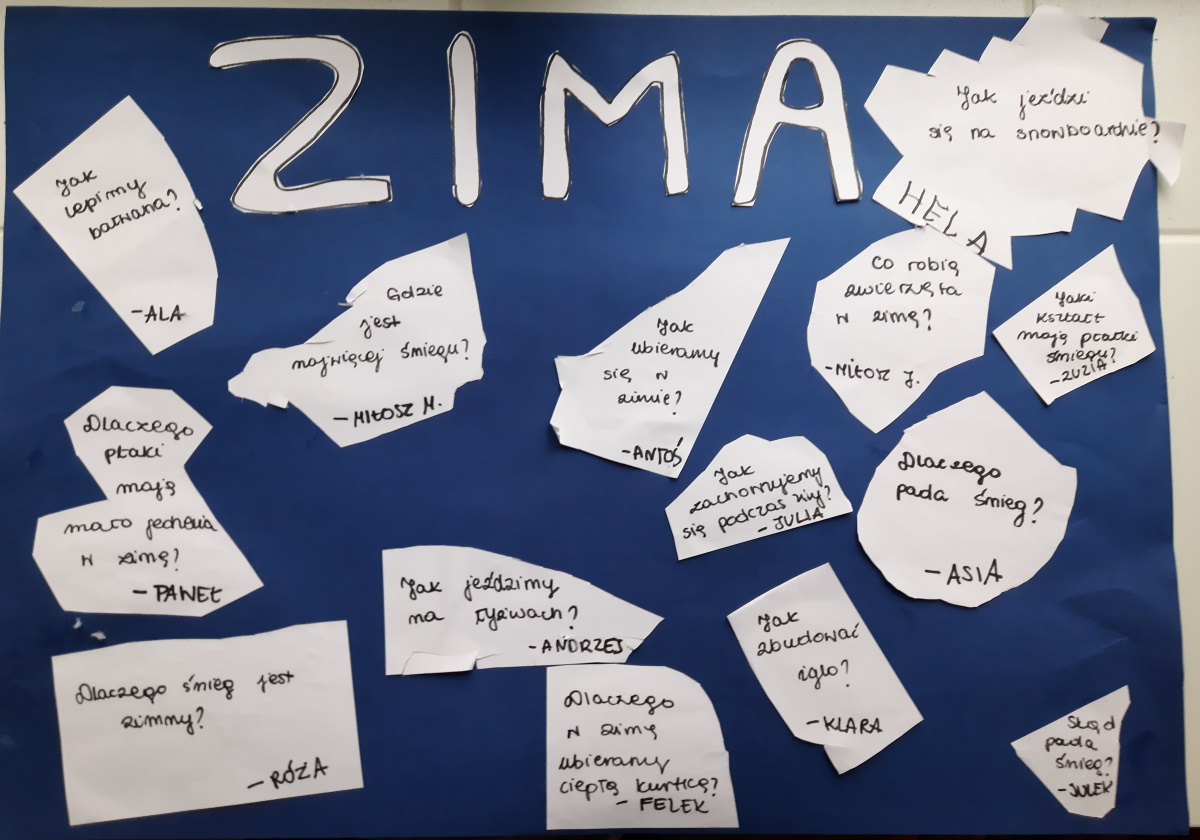 ZIMA
Jak
lepimy
bałwana?
-ALA
Jak jeździ
się na snowboardzie?
HELA
Gdzie
jest
najwięcej śniegu?
- MIŁOSZ M.
Jak
ubieramy
się w
zimie?
-ANTOŚ
Co robią
zwierzęta
w zimę?
-MIŁOSZ J.
Jaki
kształt
mają płatki
śniegu?
-ZUZIA
Dlaczego
ptaki
mają
mało jedzenia
w zimę?
- PAWEŁ
Jak
zachowujemy
się podczas zimy?
- JULIA
Dlaczego
pada śnieg?
-ASIA
Jak jeździmy
na łyżwach?
-ANDRZEJ
Jak
zbudować
iglo?
-KLARA
Dlaczego śnieg jest
zimny?
- RÓŻA
Dlaczego
w zimę
ubieramy
ciepłą kurtkę?
- FELEK
Skąd
pada
śnieg?
-JULEK